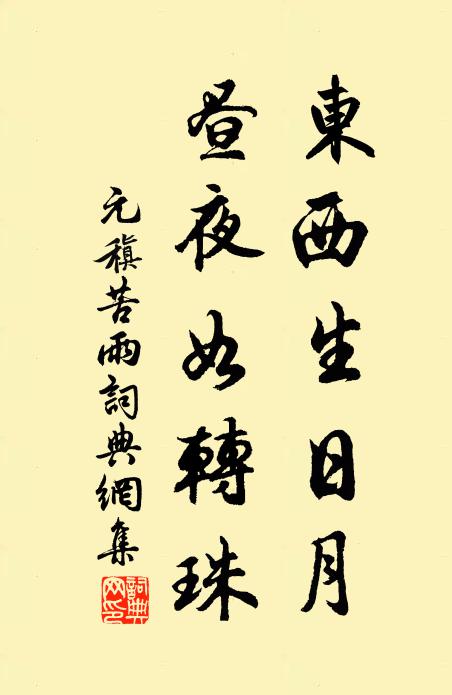 東西生日月
晝夜如轉珠
元稹苦雨詞典網集
詞典网印